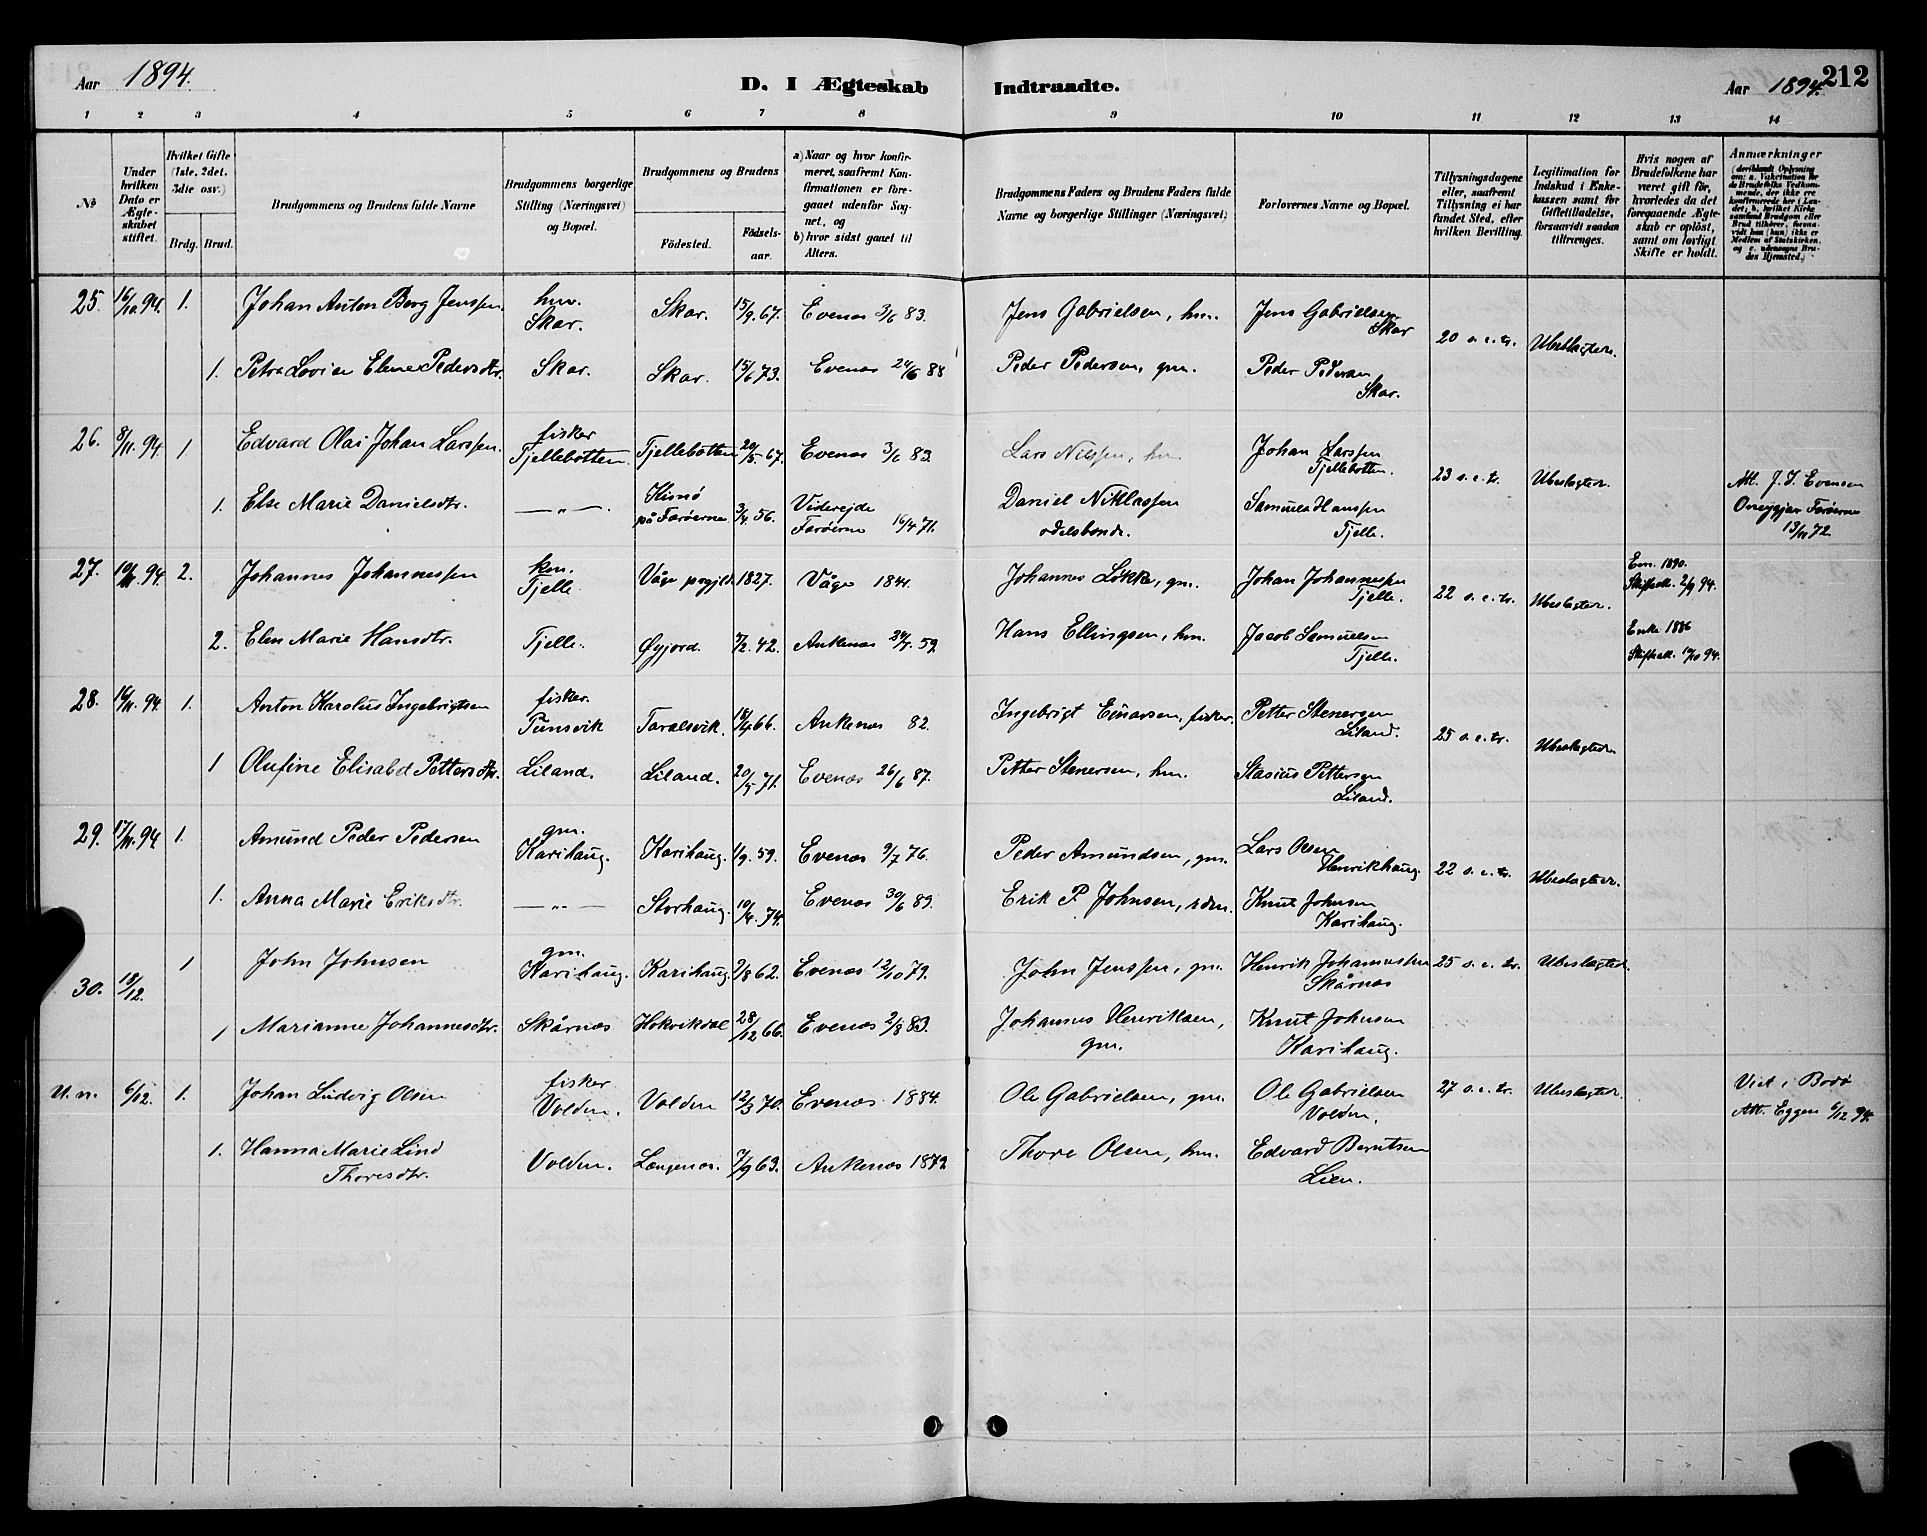 Aar 1894.
D. I Ægteskab Indtraadte.
Aar 1894.
212
1 2 3 4 5 6 7 8 9 10 11 12 13 14
No
Under hvilken Dato er Ægteskabet stiftet.
Hvilket Gifte (1ste, 2det, 3die osv.)
Brdg. Brud.
Brudgommens og Brudens fulde Navne
Brudgommens borgerlige Stilling (Næringsvei) og Bopæl.
Brudgommens og Brudens
Fødested.
Fødselsaar.
a) Naar og hvor konfirmeret, saafremt Konfirmationen er foregaaet udenfor Sognet, og
b) hvor sidst gaaet til Alters.
Brudgommens Faders og Brudens Faders fulde Navne og borgerlige Stillinger (Næringsvei)
Forlovernes Navne og Bopæl.
Tillysningsdagene eller, saafremt Tillysning ei har fundet Sted, efter hvilken Bevilling.
Legitimation for Indskud i Enkekassen samt for Giftetilladelse, forsaavidt saadan tiltrænges.
Hvis nogen af Brudefolkene har været gift før, hvorledes da det foregaaende Ægteskab er opløst, samt om lovligt Skifte er holdt.
Anmærkninger
25. 16/10 94. 1. Johan Anton Berg Jenssen. hm. Skar. Skar. 15/9 67. Evenes 3/6 83. Jens Gabrielsen, hm. Jens Gabrielsen Skar 20 s. e. tr. Ubeslægtede.
1. Petra Lovise Elene Pedersdtr. Skar. Skar. 15/6 73. Evenes 24/6 88 Peder Pedersen, gm. Peder Pedersen Skar.
26. 8/11 94. 1 Edvard Olai Johan Larssen. fisker Tjellebotten. Tjellebotten 20/5 67. Evenes 3/6 83. Lars Nilssen, hm. Johan Larssen Tjellebotten. 23 s. e. tr. Ubeslægtede.
1. Else Marie Danielsdtr. —„—. på Farøerne 3/4 56. Viderejde Farøerne 16/4 71. Daniel Niklassen odelsbonde. Samuel Hanssen Tjelle. Att. J. S. Evensen Farøerne 13/11 72.
27. 10/11 94. 2. Johannes Johannessen Tjelle Våge prgjld. 1827. Våge 1844. Johannes Løkke, gm. Johan Johannessen Tjelle. 22 s. e. tr. Ubeslægtede. Em. 1890. Skifteatt. 2/9 94.
2. Elen Marie Hansdtr. Tjelle. Øyjord. 7/2 42. Ankenes 24/7 59 Hans Ellingsen, hm. Jacob Samuelsen Tjelle. Enke 1886 Skifteatt. 10/10 94.
28. 16/11 94. 1. Anton Karolus Ingebrigtsen fisker. Punsvik Taralsvik. 18/4 66. Ankenes 82. Ingebrigt Einarsen, fisker. Petter Stenersen Liland. 25 s. e. tr. Ubeslægtede
1 Olufine Elisabet Pettersdtr. Liland. Liland. 20/5 71. Evenes 26/6 87. Petter Stenersen, hm. Stasius Pettersen Liland.
29. 17/11 94 1. Amund Peder Pedersen gm. Karihaug. Karihaug. 1/9 59. Evenes 9/7 76. Peder Amundsen, gm. Lars Olsen Henrikhaug. 22 s. e. tr. Ubeslægtede.
1. Anna Marie Eriksdtr. —„— Storhaug. 10/4 74. Evenes 30/6 89. Erik P. Johnsen, Knut Johnsen Karihaug.
30. 18/12. 1 John Johnsen gm. Karihaug. Karihaug. 2/8 62. Evenes 12/10 79. John Jenssen, gm. Henrik Johannessen Skårnes 25 s. e. tr. Ubeslægtede.
1 Marianne Johannesdtr. Skårnes Hokvikdal 28/12 66. Evenes 2/8 83. Johannes Henriksen, gm. Knut Johnsen Karihaug.
U. n. 6/12. 1. Johan Ludvig Olsen fisker Volden. Volden 12/3 70. Evenes 1884. Ole Gabrielsen, gm. Ole Gabrielsen Volden. 27 s. e. tr. Ubeslægtede. Viet i Bodø Att. Eggen 6/12 94.
1. Hanna Marie Lind Thoresdtr. Volden. Langenes. 7/9 63. Ankenes 1879 Thore Olsen, hm. Edvard Berntsen Lien.